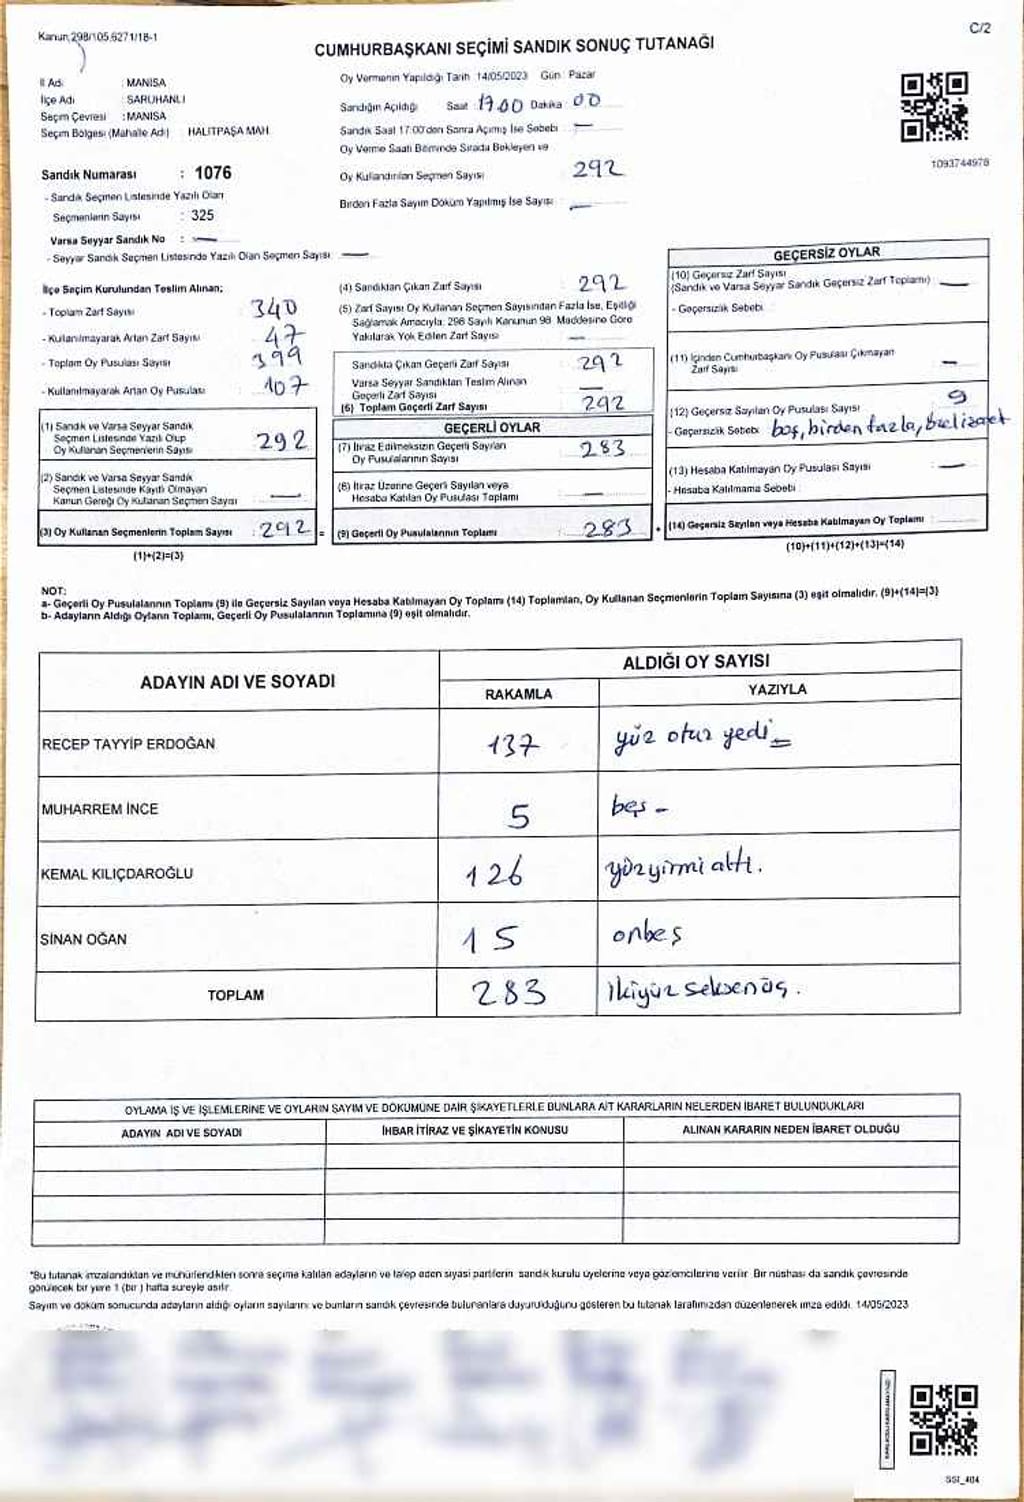 Kanun 298/105,6271/18-1
C/2
CUMHURBAŞKANI SEÇİMİ SANDIK SONUÇ TUTANAĞI
İl Adı : MANİSA
İlçe Adı : SARUHANLI
Seçim Çevresi : MANİSA
Seçim Bölgesi (Mahalle Adı) : HALİTPAŞA MAH.
Sandık Numarası : 1076
- Sandık Seçmen Listesinde Yazılı Olan
Seçmenlerin Sayısı : 325
Varsa Seyyar Sandık No : —
- Seyyar Sandık Seçmen Listesinde Yazılı Olan Seçmen Sayısı : —
Oy Vermenin Yapıldığı Tarih 14/05/2023 Gün : Pazar
Sandığın Açıldığı Saat : 17.00 Dakika : 00
Sandık Saat 17:00'den Sonra Açılmış İse Sebebi : —
Oy Verme Saati Bitiminde Sırada Bekleyen ve
Oy Kullandırılan Seçmen Sayısı : 292
Birden Fazla Sayım Döküm Yapılmış İse Sayısı : —
1093744978
İlçe Seçim Kurulundan Teslim Alınan;
- Toplam Zarf Sayısı : 340
- Kullanılmayarak Artan Zarf Sayısı : 47
- Toplam Oy Pusulası Sayısı : 399
- Kullanılmayarak Artan Oy Pusulası : 107
(1) Sandık ve Varsa Seyyar Sandık
Seçmen Listesinde Yazılı Olup
Oy Kullanan Seçmenlerin Sayısı : 292
(2) Sandık ve Varsa Seyyar Sandık
Seçmen Listesinde Kayıtlı Olmayan
Kanun Gereği Oy Kullanan Seçmen Sayısı : —
(3) Oy Kullanan Seçmenlerin Toplam Sayısı : 292 =
(1)+(2)=(3)
(4) Sandıktan Çıkan Zarf Sayısı : 292
(5) Zarf Sayısı Oy Kullanan Seçmen Sayısından Fazla İse, Eşitliği
Sağlamak Amacıyla; 298 Sayılı Kanunun 98. Maddesine Göre
Yakılarak Yok Edilen Zarf Sayısı : —
Sandıkta Çıkan Geçerli Zarf Sayısı : 292
Varsa Seyyar Sandıktan Teslim Alınan
Geçerli Zarf Sayısı : —
(6) Toplam Geçerli Zarf Sayısı : 292
GEÇERLİ OYLAR
(7) İtiraz Edilmeksizin Geçerli Sayılan
Oy Pusulalarının Sayısı : 283
(8) İtiraz Üzerine Geçerli Sayılan veya
Hesaba Katılan Oy Pusulası Toplamı : —
(9) Geçerli Oy Pusulalarının Toplamı : 283 +
GEÇERSİZ OYLAR
(10) Geçersiz Zarf Sayısı
(Sandık ve Varsa Seyyar Sandık Geçersiz Zarf Toplamı) : —
- Geçersizlik Sebebi :
(11) İçinden Cumhurbaşkanı Oy Pusulası Çıkmayan
Zarf Sayısı : —
(12) Geçersiz Sayılan Oy Pusulası Sayısı : 9
- Geçersizlik Sebebi : boş, birden fazla,
(13) Hesaba Katılmayan Oy Pusulası Sayısı : —
- Hesaba Katılmama Sebebi :
(14) Geçersiz Sayılan veya Hesaba Katılmayan Oy Toplamı :
(10)+(11)+(12)+(13)=(14)
NOT:
a- Geçerli Oy Pusulalarının Toplamı (9) ile Geçersiz Sayılan veya Hesaba Katılmayan Oy Toplamı (14) Toplamları, Oy Kullanan Seçmenlerin Toplam Sayısına (3) eşit olmalıdır. (9)+(14)=(3)
b- Adayların Aldığı Oyların Toplamı, Geçerli Oy Pusulalarının Toplamına (9) eşit olmalıdır.
ADAYIN ADI VE SOYADI
ALDIĞI OY SAYISI
RAKAMLA YAZIYLA
RECEP TAYYİP ERDOĞAN 137 yüz otuz yedi
MUHARREM İNCE 5 beş -
KEMAL KILIÇDAROĞLU 126 yüzyirmi altı.
SİNAN OĞAN 15 onbeş
TOPLAM 283 ikiyüz seksenüç.
OYLAMA İŞ VE İŞLEMLERİNE VE OYLARIN SAYIM VE DÖKÜMÜNE DAİR ŞİKAYETLERLE BUNLARA AİT KARARLARIN NELERDEN İBARET BULUNDUKLARI
ADAYIN ADI VE SOYADI İHBAR İTİRAZ VE ŞİKAYETİN KONUSU ALINAN KARARIN NEDEN İBARET OLDUĞU
*Bu tutanak imzalandıktan ve mühürlendikten sonra seçime katılan adayların ve talep eden siyasi partilerin sandık kurulu üyelerine veya gözlemcilerine verilir. Bir nüshası da sandık çevresinde
görülecek bir yere 1 (bir) hafta süreyle asılır.
Sayım ve döküm sonucunda adayların aldığı oyların sayılarını ve bunların sandık çevresinde bulunanlara duyurulduğunu gösteren bu tutanak tarafımızdan düzenlenerek imza edildi. 14/05/2023
SSİ_404